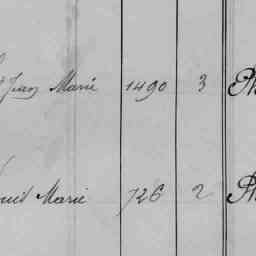 Jean Marie 1490 3 Ph
Louis Marie 726 2 Ph